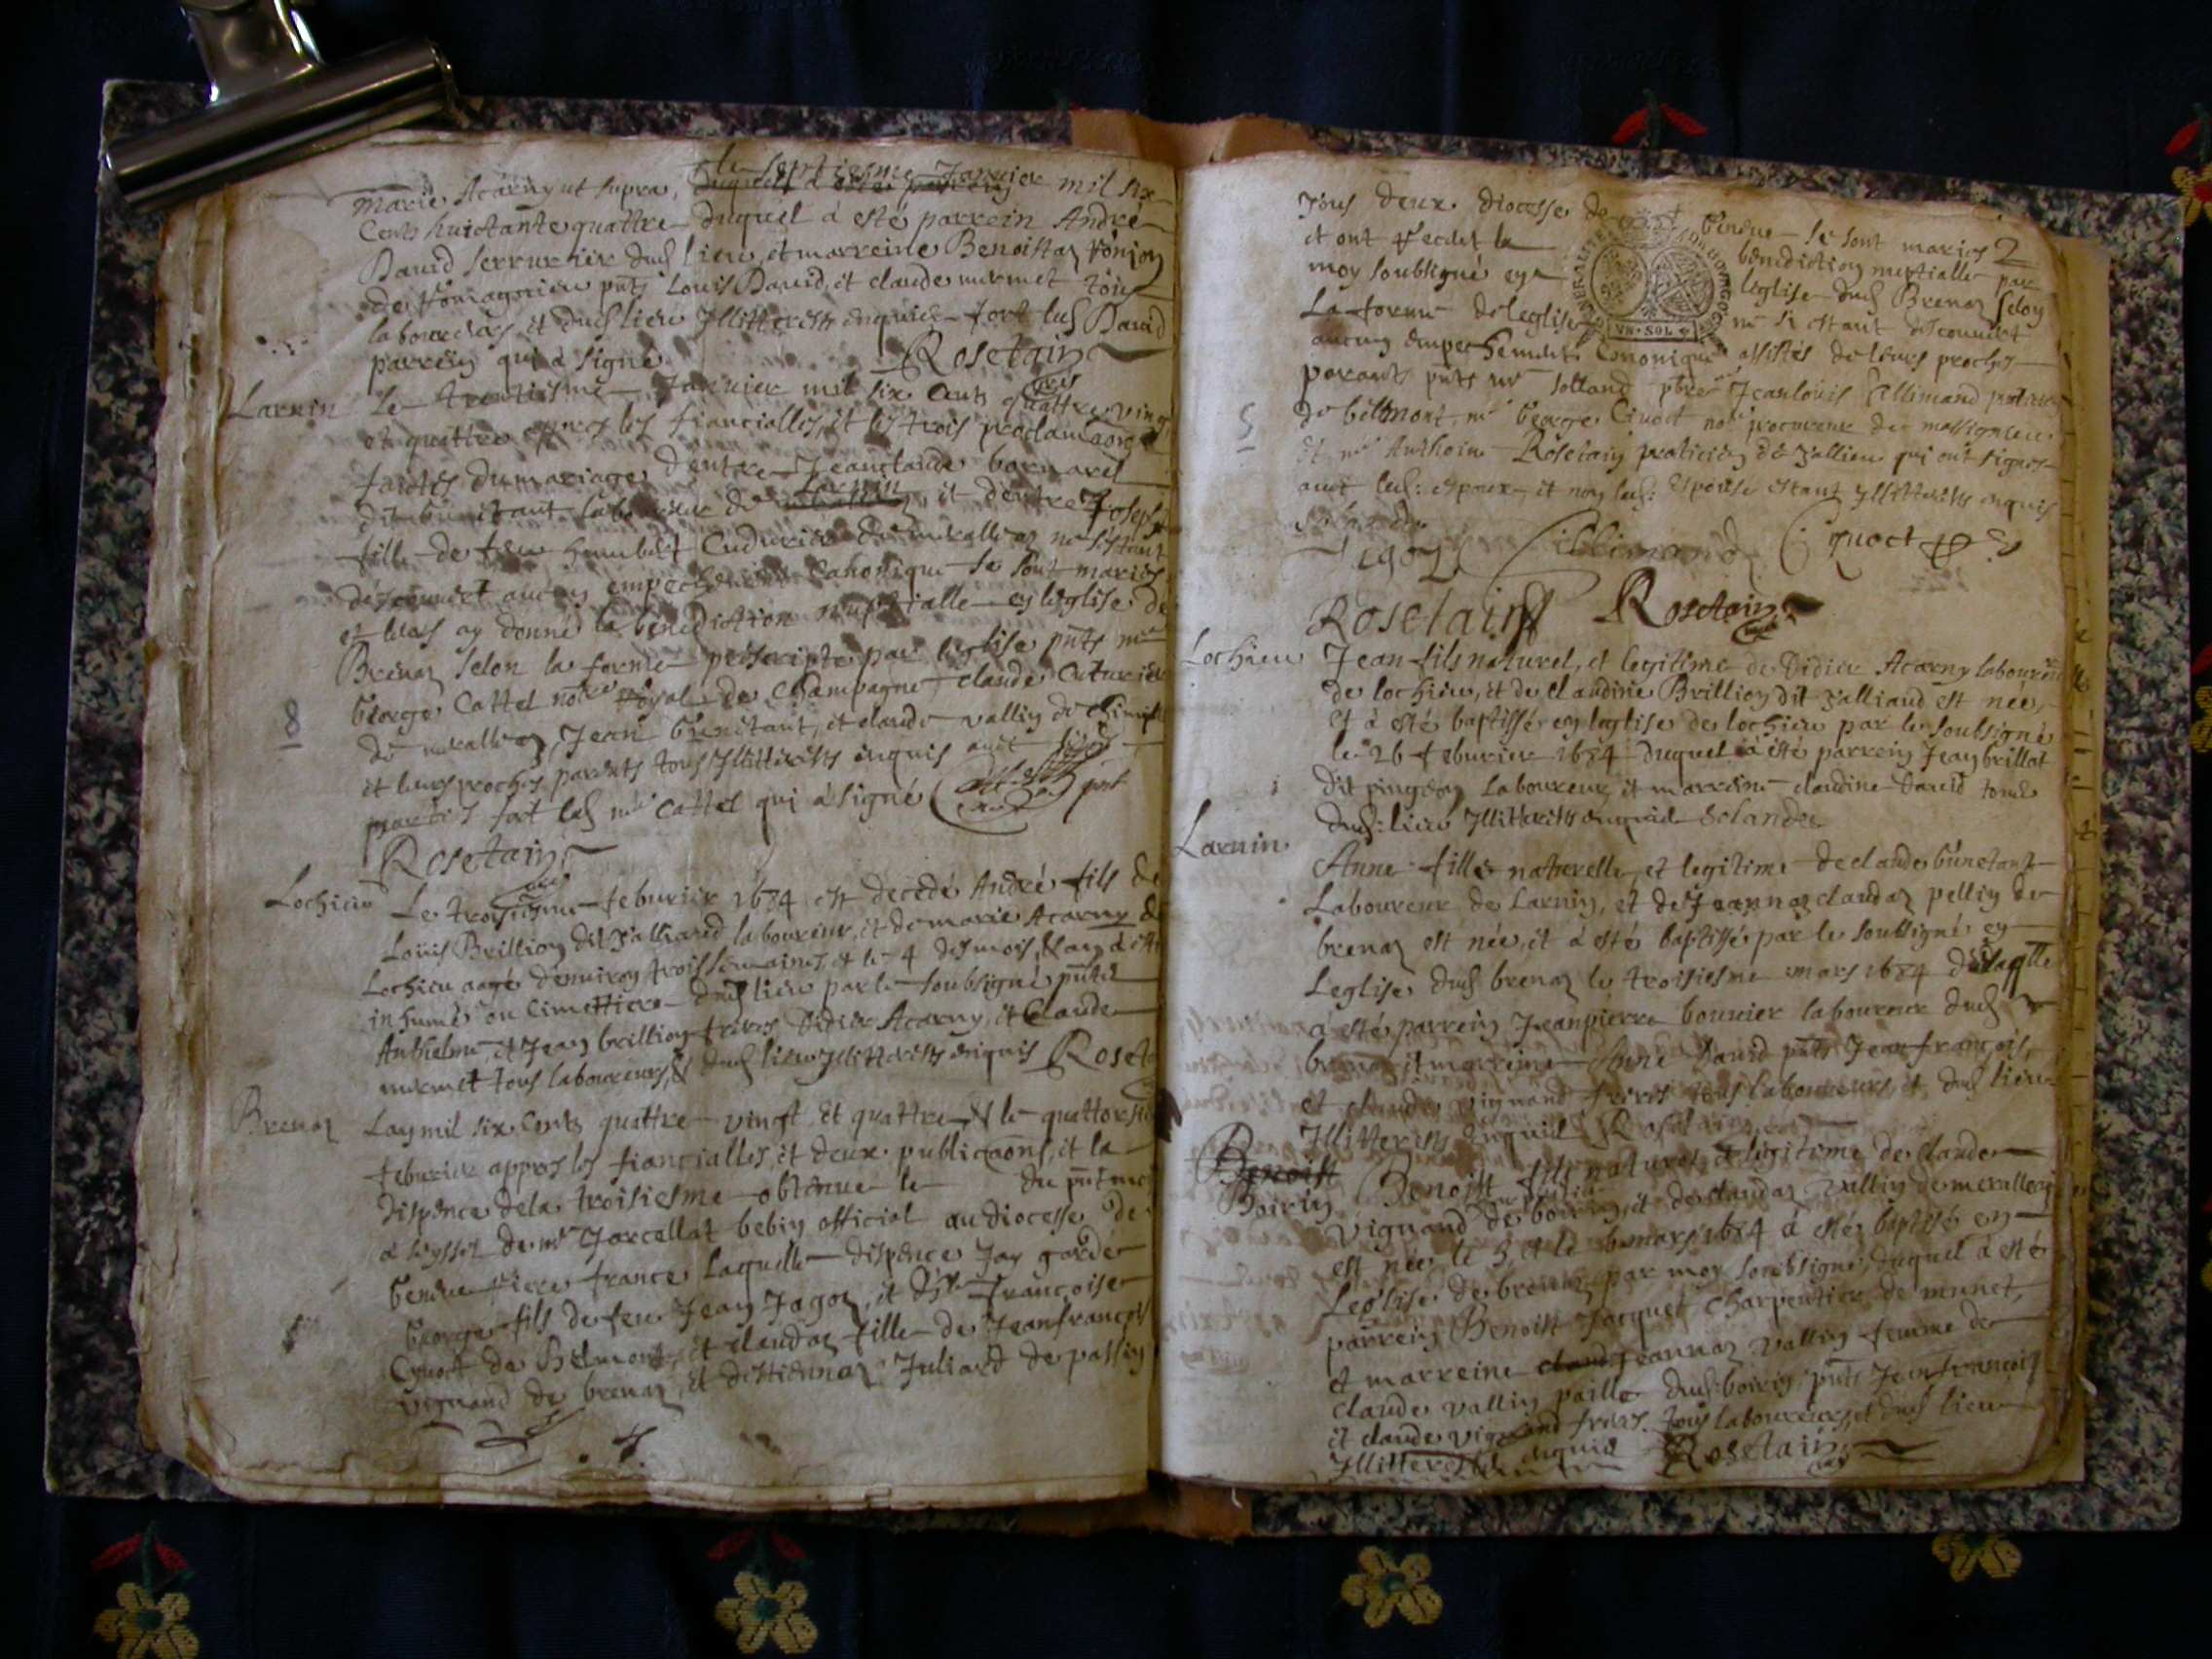 le septiesme Janvier
Marie Acarny ut supra, mil six
Cents huictante quattre duquel à esté parrein André
David serrurier dud lieu, et marreine Benoistaz
de pnts Louis David, et claude mermet tous
laboureurs et dud lieu Illitterés enquis fort led David
parrein qui à signé Rosetain
Larnin Le trentiesme Janvier mil six cents quattre vingt
et quattre appres les fiancialles, et les trois proclamaons
faictes du mariage d'entre Jeanclaude
dit bunitant laboureur de Larnin, et d'entre Josepht
fille de feu Humbert Cuturier de ne s'estant
descouvert aucun empechement Canonique se sont mariés
et leur ay donné la bénédiction nuptialle en leglise de
Brenaz selon la forme perscripte par leglise pnts me
George Cattel nore Royal de Champagne claude Cuturier
de Jean bunitant, et claude vallin de
et leurs proches parents tous Illitterés enquis avec
parties fort led me Cattel qui à signé
8
Rosetain
Lochieu Le troisiesme feburier 1684 est decedé André fils de
Louis Brillion dit Jalliard laboureur, et de marie Acarny de
Lochieu aagé denviron trois semaines, et le 4 des mois, & an à esté
inhumé on Cimettiere dud lieu par le soubsigné pnts
Anthelme, et Jean brillion freres Didier Acarny, et Claude
mermet tous laboureurs, & dud lieu Illitterés enquis Roset
Brenaz Lay mil six Cents quattre vingt et quattre & le quattorsie
feburier appres les fiancialles, et deux publicaons, et la
dispence dela troisiesme obtenue le du pnt moi
à seyssel de mr Jarcellat bebin official au diocesse de
Geneve riere france Laquelle dispence Jay gardé
George fils de feu Jean Jagoz, et dlle Françoise
Cyvoct de Belmont, et claudaz fille de Jeanfrançois
vignand de brenaz, et destiennaz Juliard de passin
Tous deux diocesse de Geneve se sont mariés 2
et ont receut la bénédiction nuptialle par
moy soubsigné en leglise dud Brenaz selon
La forme de leglise ne si estant descouvert
VN · SOL
aucun empechement Cononique assistés de leurs proches
parants pnts mr solland pbre Jeanlouis Cillimand
de bellmont, me George Civoct nore procureur de massignieu
5
Et me Anthoine Rosetain praticien de Jallieu qui ont signés
avec led: espoux et non lad: Espouse estant Illitterés enquis
Solandre
Jagoz Cillimand Cyvoct
Rosetain Rosetain
Lochieu Jean fils naturel, et legitime de Didier Acarny laboureur
de lochieu, et de claudine Brillion dit Jalliard est née,
et à esté baptissé en leglise de lochieu par le soubsigné
le 26 feburier 1684 duquel à esté parrein Jean brillat
dit pingeon Laboureur, et marreine claudine David tous
dud: lieu Illitterés enquis Solandre
Larnin
Anne fille naturelle, et legitime de claude bunetant
Laboureur de Larnin, et de Jeannaz claudaz pellin de
brenaz est née, et à esté baptissé par le soubsigné en
Leglise dud brenaz le troisiesme mars 1684 de laqlle
à esté parrein Jeanpierre bouvier laboureur dud
brenaz et marreine Anne David pnts Jean françois,
et claude vignand freres tous laboureurs, et dud lieu
Illitterés enquis Rosetain
Benoist
Boirin Benoist fils naturel, et legitime de claude
vignand de boirin, et de claudaz vallin de
est née, le 5, et le 6 mars 1684 à esté baptissé en
Leglise de brenaz par moy soubsigné, duquel à esté
parrein Benoist Jacquet Charpentier de munet,
et marreine claud Jeannaz vallin femme de
claude vallin paille dud: boirin pnts Jeanfrancois
et claude vignand freres tous laboureurs, et dud lieu
Illitterés enquis Rosetain